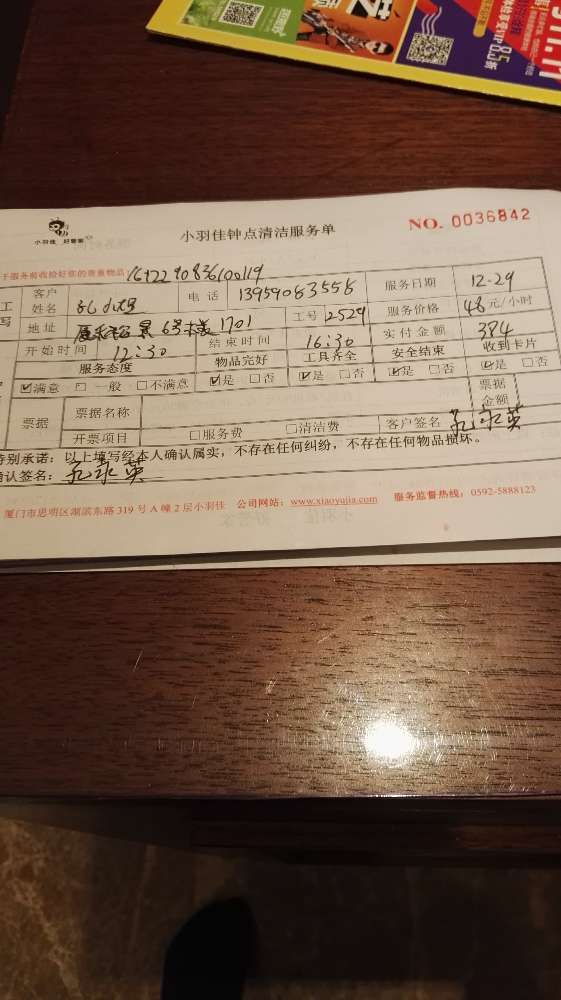 小羽佳 好管家
小羽佳钟点清洁服务单
NO. 0036842
于服务前收捡好您的贵重物品
客户姓名 孔小姐 电话 13959083558 服务日期 12-29
地址 6号楼1701 工号 2529 服务价格 48元/小时
开始时间 12:30 结束时间 16:30 实付金额 384
服务态度 物品完好 工具齐全 安全结束 收到卡片
☑满意 □一般 □不满意 ☑是 □否 ☑是 □否 ☑是 □否 ☑是 □否
票据 票据名称 票据金额
开票项目 □服务费 □清洁费 客户签名 孔录英
特别承诺：以上填写经本人确认属实，不存在任何纠纷，不存在任何物品损坏。
确认签名：孔录英
厦门市思明区湖滨东路319号A幢2层小羽佳 公司网站：www.xiaoyujia.com 服务监督热线：0592-5888123
8.5折